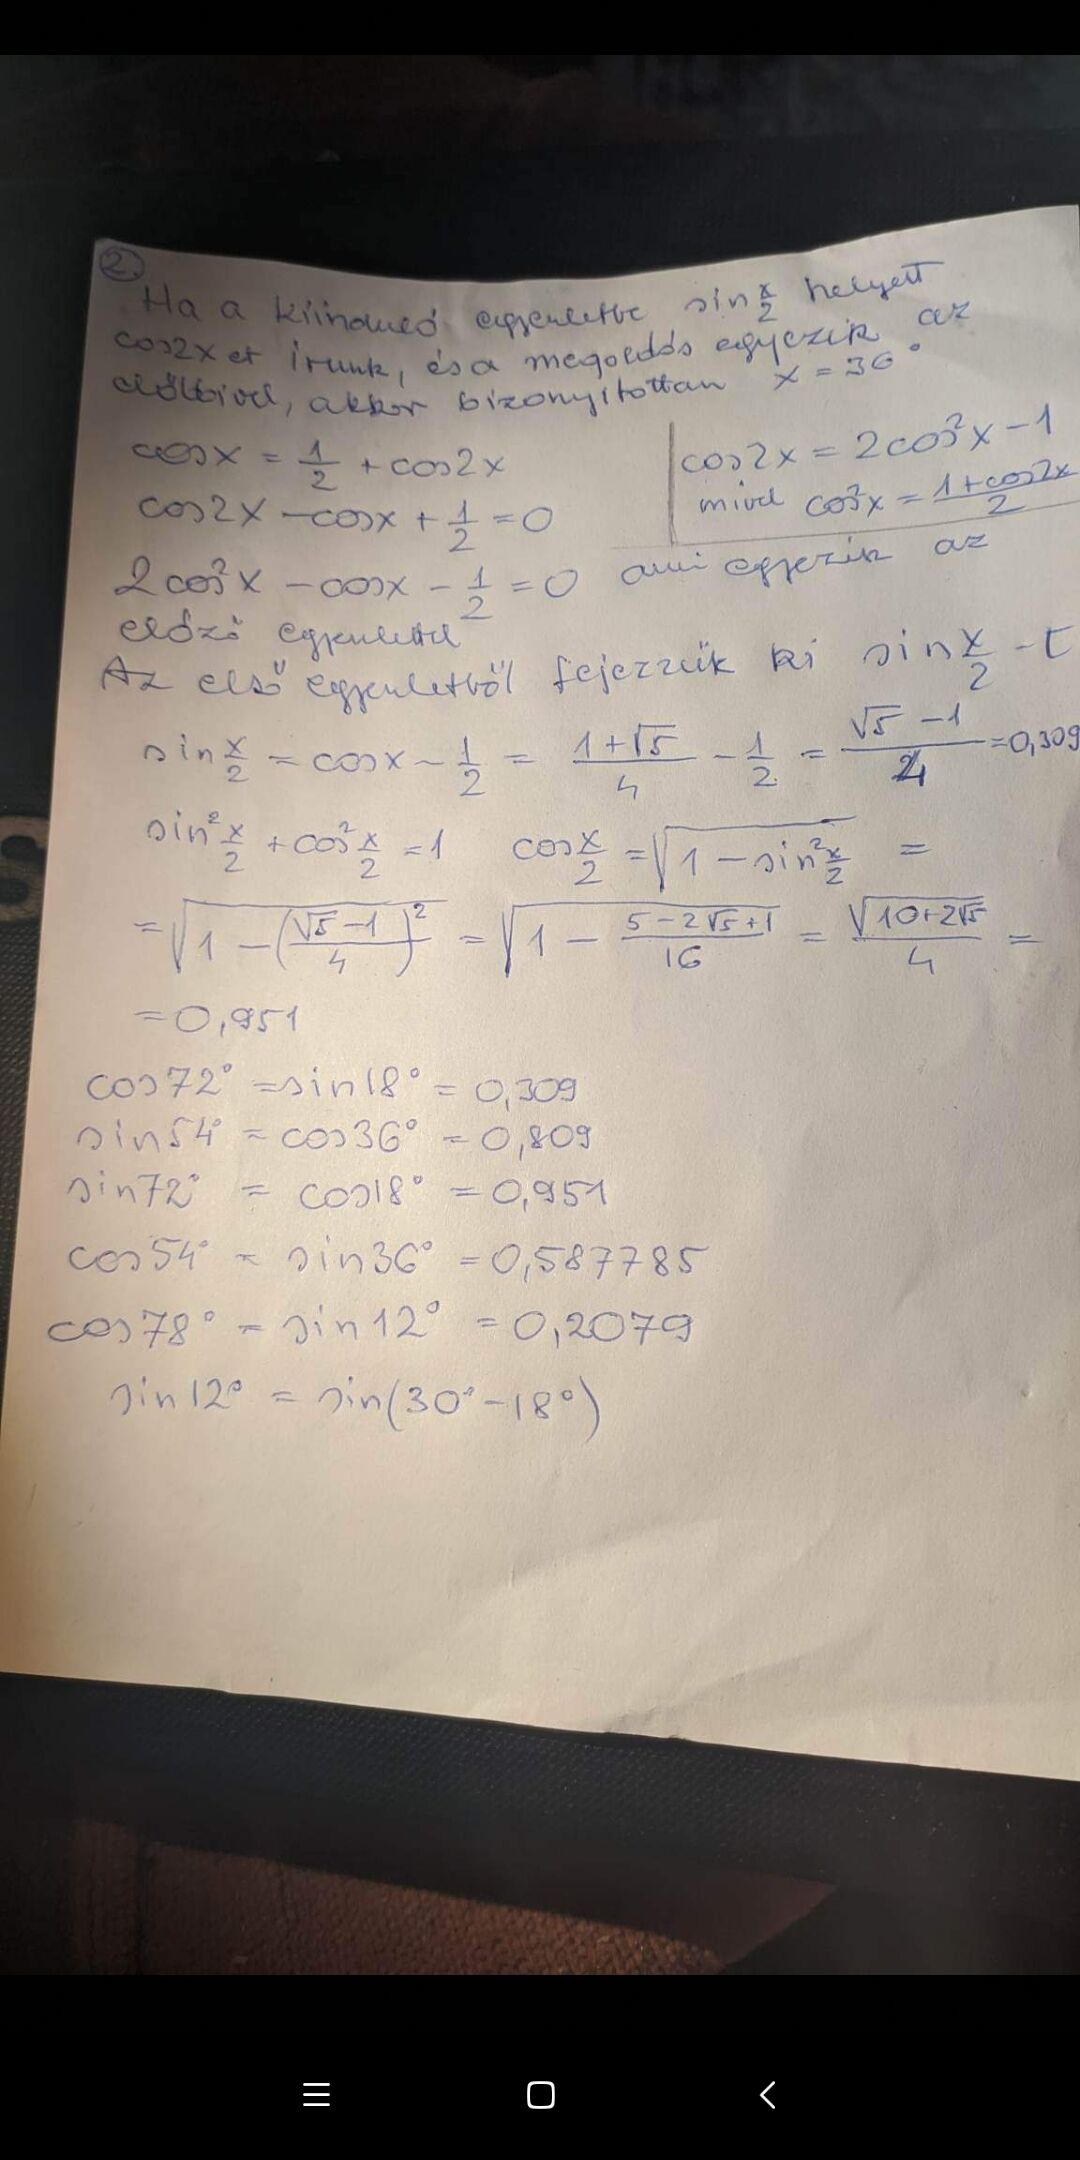 2.
Ha a kiinduló egyenletbe sin x/2 helyett
cos2x et írunk, és a megoldás egyezik az
előbbivel, akkor bizonyítottan x = 36°
cosx = 1/2 + cos2x
cos2x − cosx + 1/2 = 0
cos2x = 2cos²x − 1
mivel cos²x = (1+cos2x)/2
2cos²x − cosx − 1/2 = 0 ami egyezik az
előző egyenlettel
Az első egyenletből fejezzük ki sin x/2 -t
sin x/2 = cosx − 1/2 = (1+√5)/4 − 1/2 = (√5 −1)/4 = 0,309
sin² x/2 + cos² x/2 = 1 cos x/2 = √(1 − sin² x/2) =
= √(1 − ((√5 −1)/4)²) = √(1 − (5 − 2√5 + 1)/16) = √(10+2√5)/4 =
= 0,951
cos72° = sin18° = 0,309
sin54° = cos36° = 0,809
sin72° = cos18° = 0,951
cos54° = sin36° = 0,587785
cos78° = sin12° = 0,2079
sin12° = sin(30° − 18°)